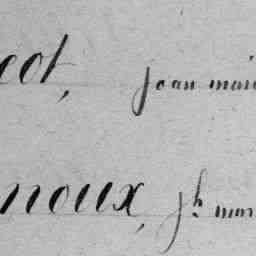 cot, jean mari
noux, jh mar